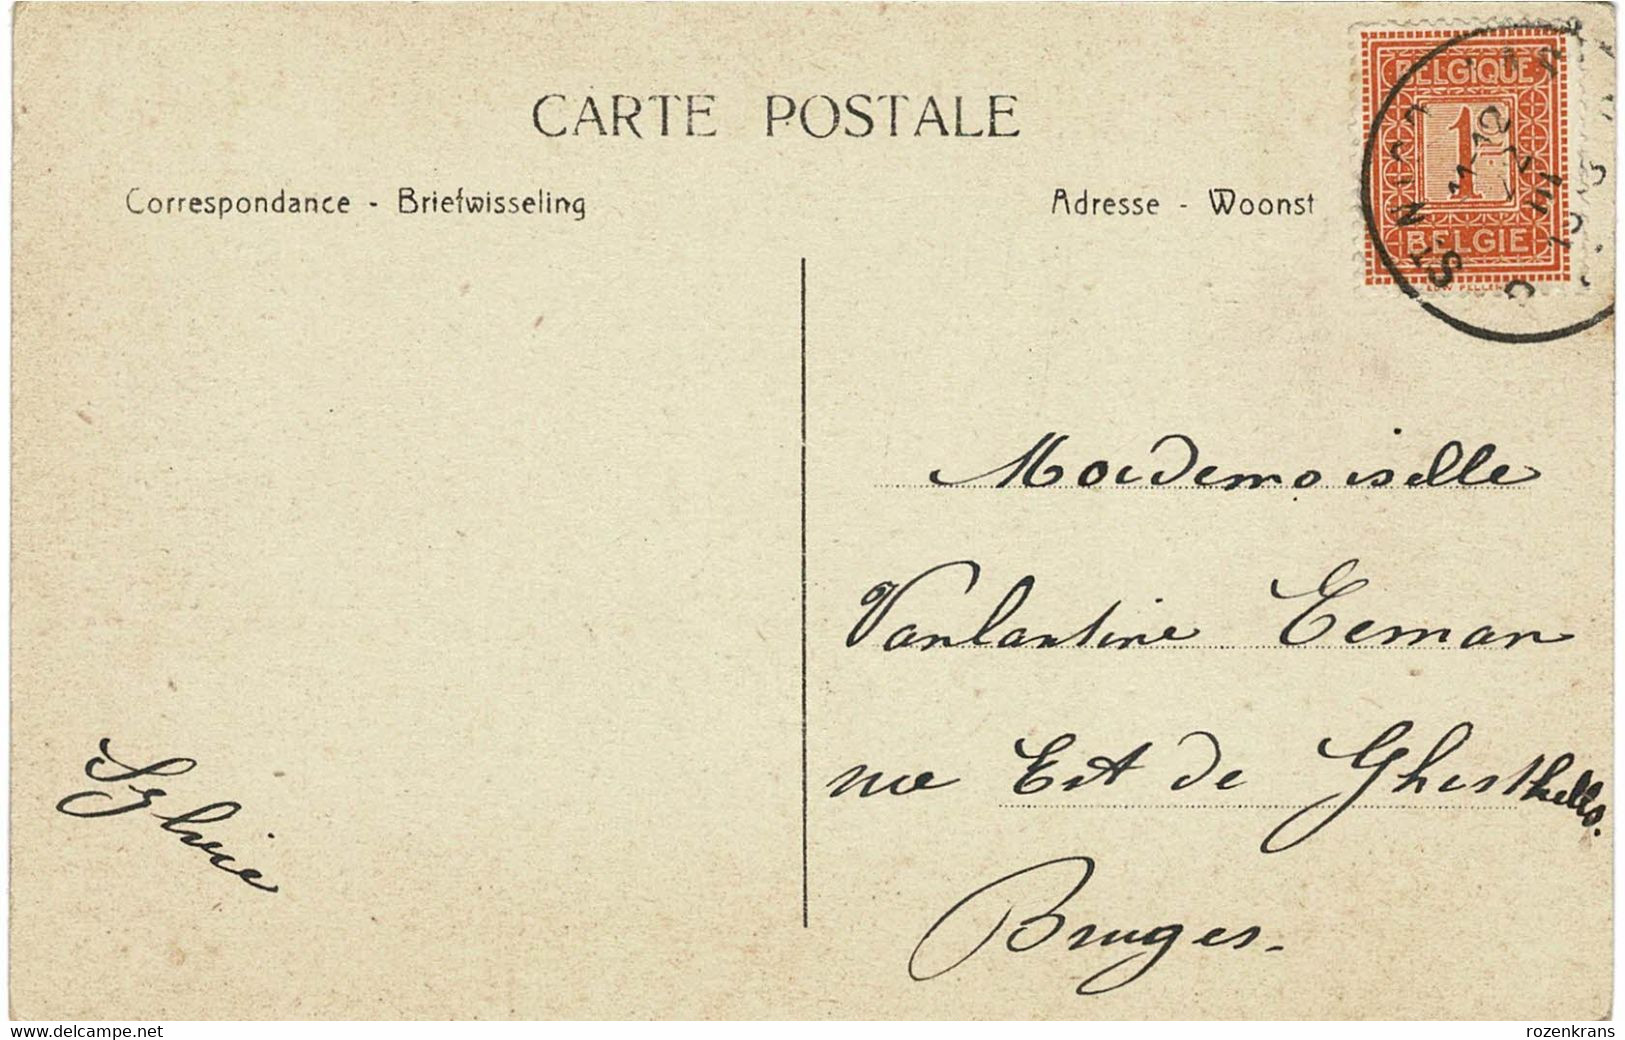 CARTE POSTALE
Correspondance - Briefwisseling
Adresse - Woonst
BELGIQUE
1
BELGIE
11-12
ST. NICO
Moedemoiselle
Vanlantine Eeman
rue Est de Ghisthelles.
Bruges.
Sylvie
www.delcampe.net
rozenkrans